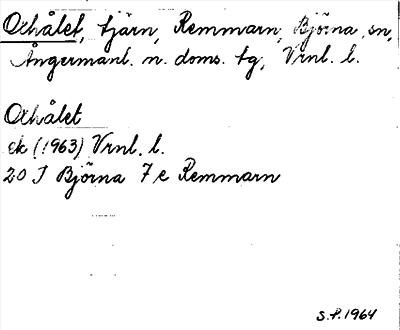 Oxhålet, tjärn, Remmarn, Björna sn,
Ångermanl. n. doms. tg, Vrnl. l.
Oxhålet
ek (1963) Vrnl. l.
20 J Björna 7 e Remmarn
S.P. 1964